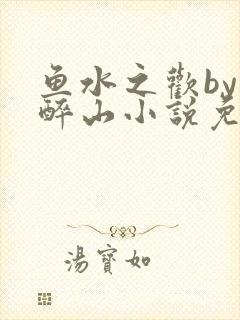 鱼水之歡by
醉山小説免
湯寶如